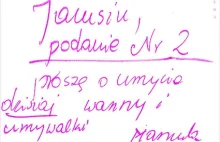 Janusiu,
podanie Nr 2
proszę o umycie
dzisiaj wanny i
umywalki
Mamuta